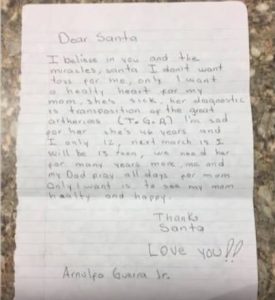 Dear Santa
I believe in you and the
miracles, santa I don't want
toys for me, only I want
a healty heart for my
mom, she's sick, her diagnostic
is transposition of the great
artherias (T.G.A) I'm sad
for her she's 46 years and
I only 12, next march is I
will be is teen, we need her
for many years more, me and
my Dad pray all days for mom
Only I want is, to see my mom
healty and happy.
Thanks
Santa
Love you!!
Arnulfo Guerra Jr.